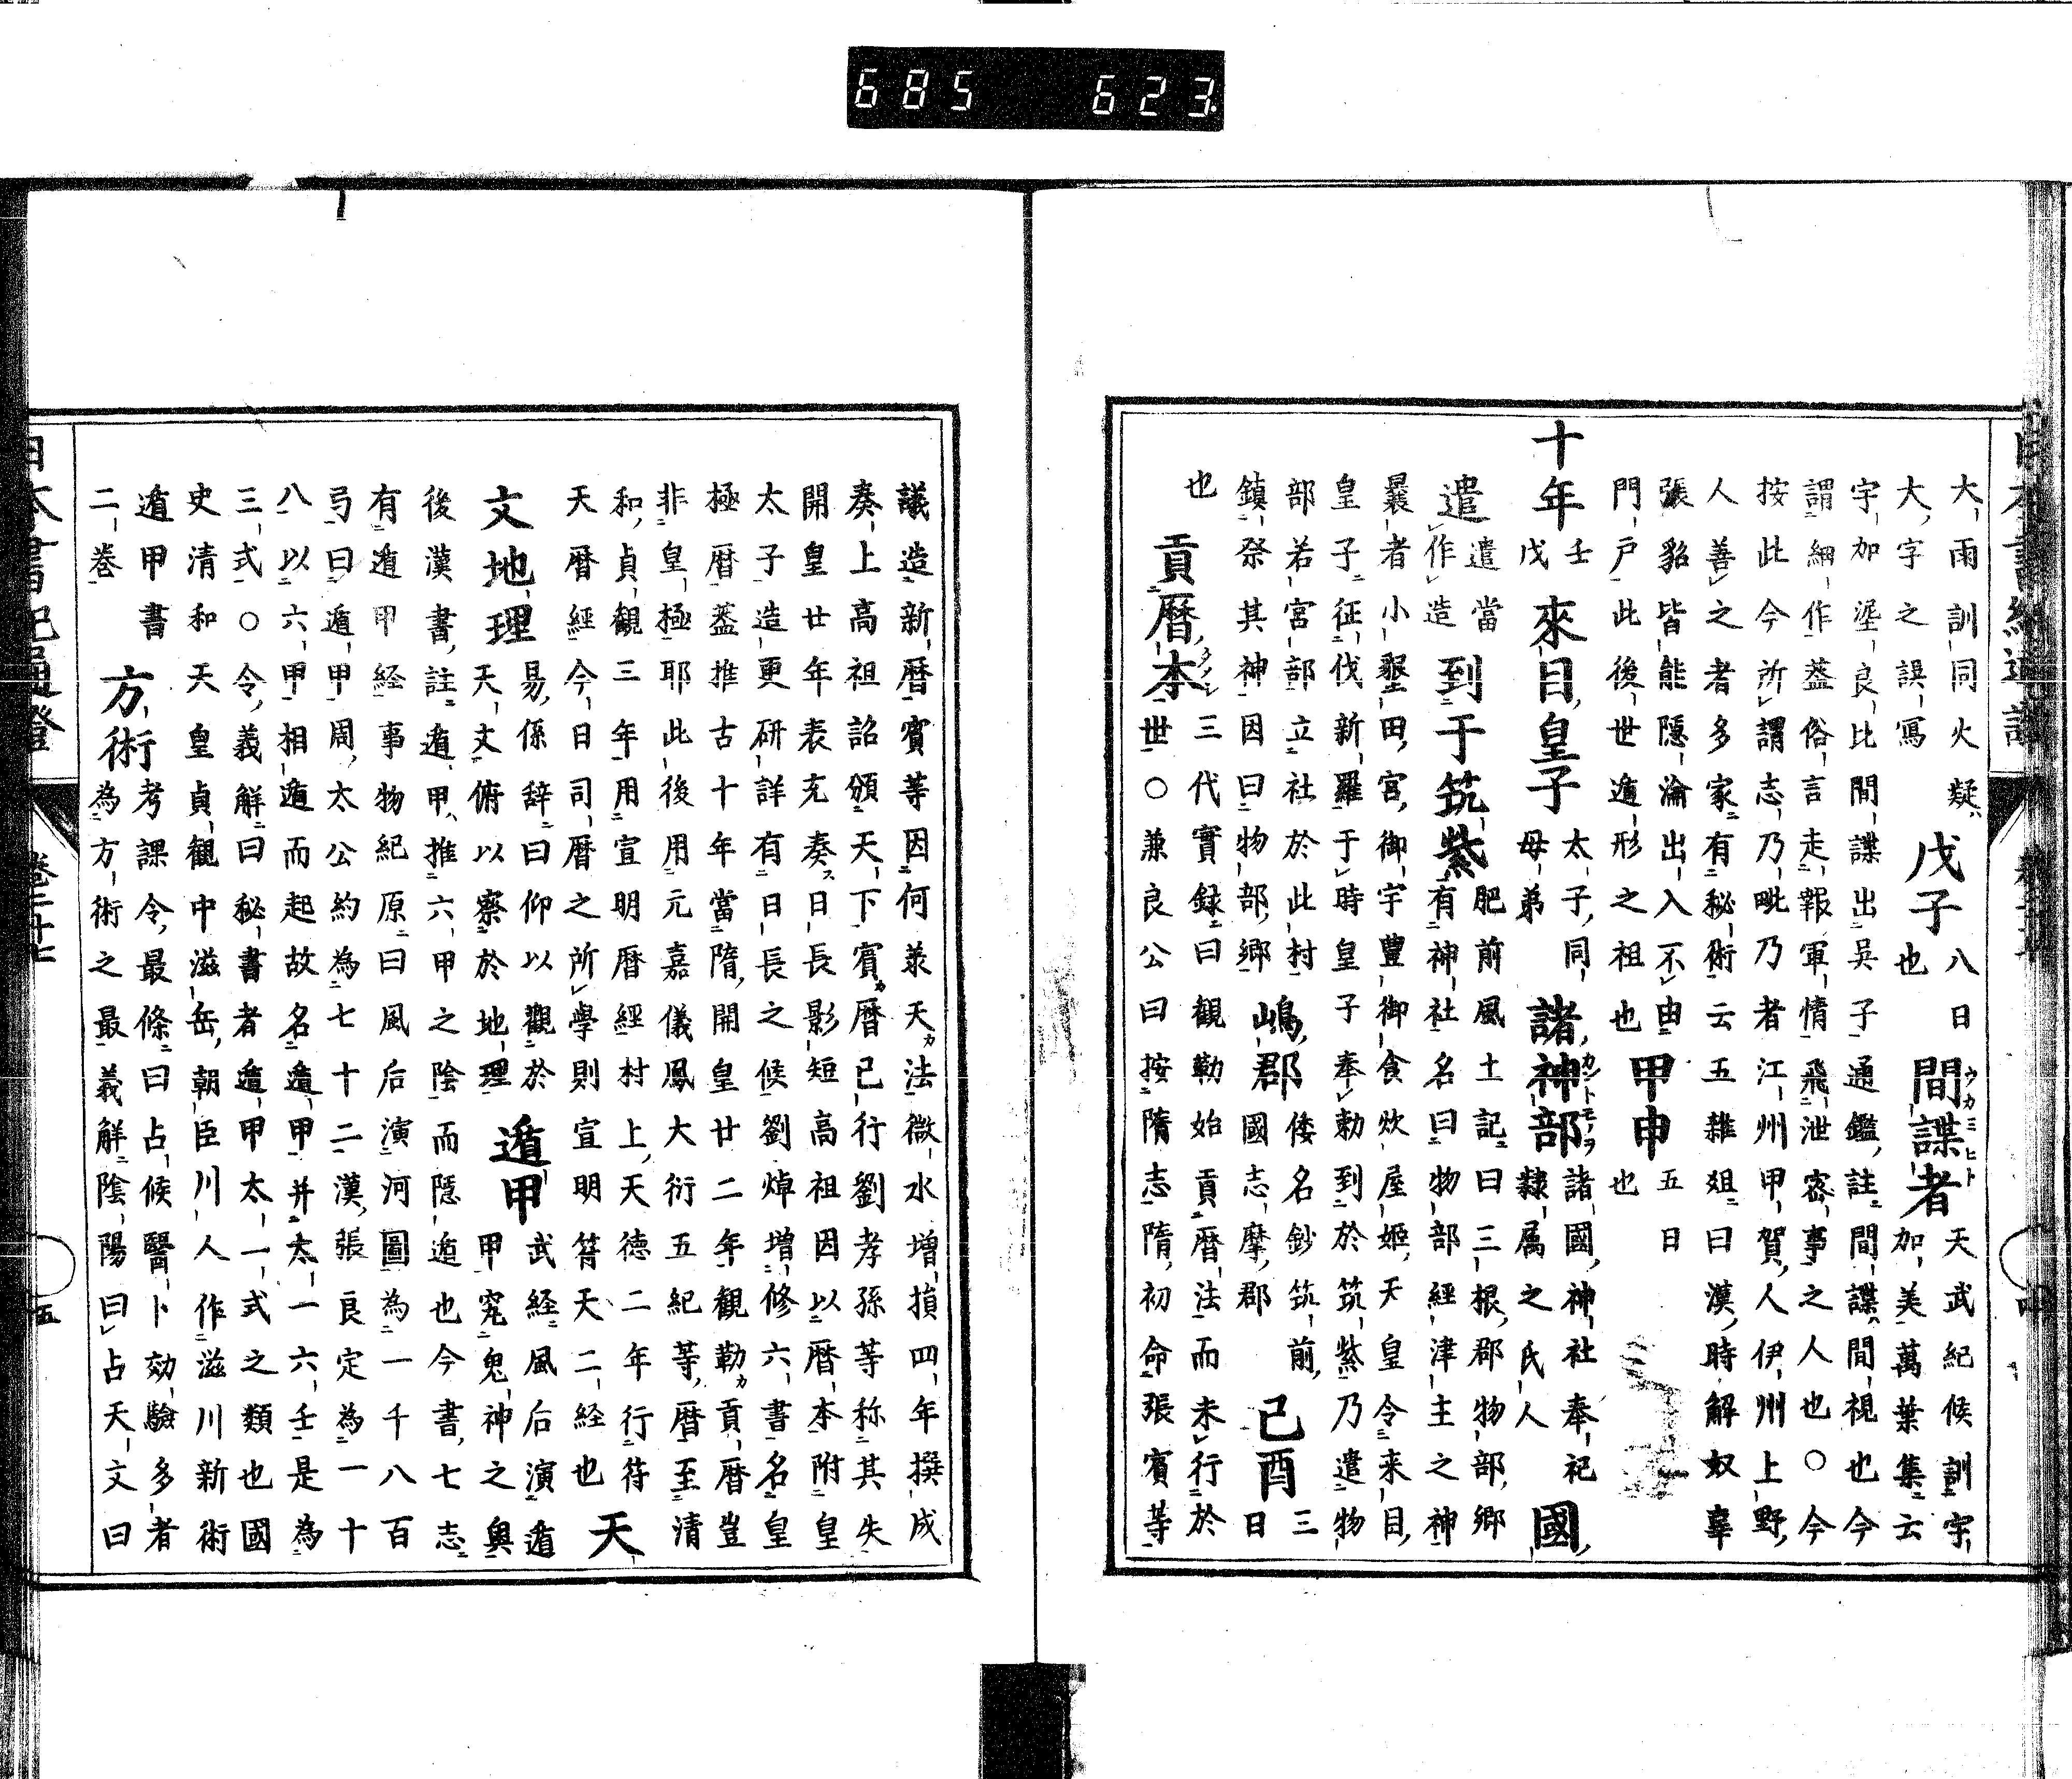 685 623
日本書紀通證
大雨訓同火疑
大字之誤寫
戊子
八日
也
間諜者
ウカミヒト
天武紀候訓宇
加美萬葉集云
宇加埿良比間諜出呉子通鑑註間諜間視也今
謂細作葢俗言走報軍情飛泄密事之人也○今
按此今所謂志乃毗乃者江州甲賀人伊州上野
人善之者多家有秘術云五雜俎曰漢時解奴辜
張貂皆能隠淪出入不由
門戸此後世遁形之祖也
甲申
五日
也
十年
壬
戊
來目皇子
太子同
母弟
諸神部
カントモノヲ
諸國神社奉祀
隷属之氏人
國
遣
遣當
作造
到于筑紫
肥前風土記曰三根郡物部郷
有神社名曰物部經津主之神
曩者小墾田宮御宇豊御食炊屋姫天皇令来目
皇子征伐新羅于時皇子奉勅到於筑紫乃遣物
部若宮部立社於此村
鎮祭其神因曰物部郷
嶋郡
倭名鈔筑前
國志摩郡
己酉
三
日
也
貢暦本
三代實録曰觀勒始貢暦法而未行於
世○兼良公曰按隋志隋初命張賓等
議造新暦賓等因何羕天法微水増損四年撰成
奏上高祖詔頒天下賓暦已行劉孝孫等称其失
開皇廿年表充奏日長影短高祖因以暦本附皇
太子造更研詳有日長之候劉焯増修六書名皇
極暦葢推古十年當隋開皇廿二年觀勒貢暦豈
非皇極耶此後用元嘉儀鳳大衍五紀等暦至清
和貞觀三年用宣明暦經村上天徳二年行苻
天暦經今日司暦之所學則宣明苻天二経也
天
文地理
易係辞曰仰以觀於
天文俯以察於地理
遁甲
武経風后演遁
甲究鬼神之奥
後漢書註遁甲推六甲之陰而隠遁也今書七志
有遁甲経事物紀原曰風后演河圖為一千八百
弓曰遁甲周太公約為七十二漢張良定為一十
八以六甲相遁而起故名遁甲并太一六壬是為
三式○令義解曰秘書者遁甲太一式之類也國
史清和天皇貞觀中滋岳朝臣川人作滋川新術
遁甲書
二巻
方術
考課令最條曰占候醫卜効驗多者
為方術之最義解陰陽曰占天文曰
日本書紀通證
五